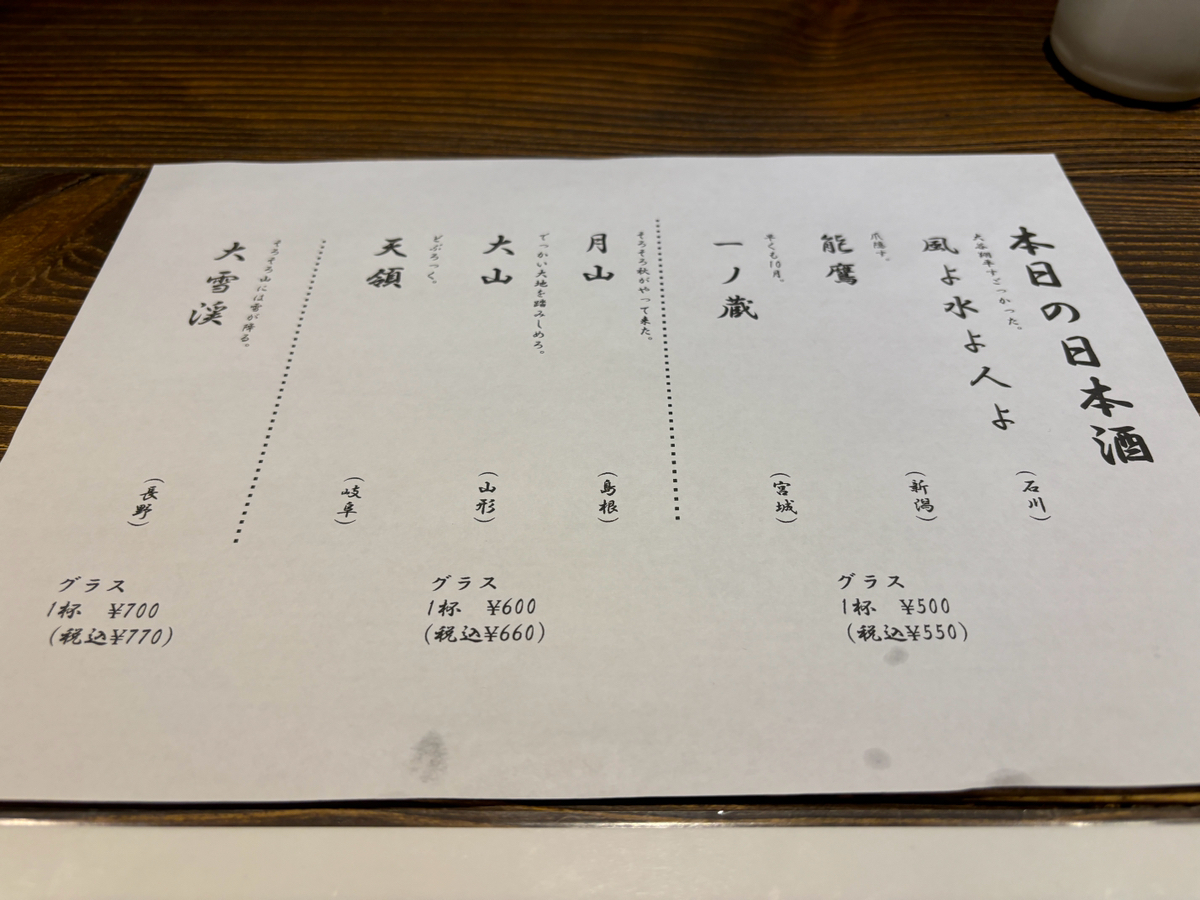 本日の日本酒
大谷翔平すごつかった。
風よ水よ人よ
(石川)
爪隠す。
能鷹
(新潟)
早くも10月。
一ノ蔵
(宮城)
グラス
1杯 ¥500
(税込¥550)
そろそろ秋がやって来た。
月山
(島根)
でっかい大地を踏みしめろ。
大山
(山形)
どぶろっく。
天領
(岐阜)
グラス
1杯 ¥600
(税込¥660)
そろそろ山には雪が降る。
大雪渓
(長野)
グラス
1杯 ¥700
(税込¥770)